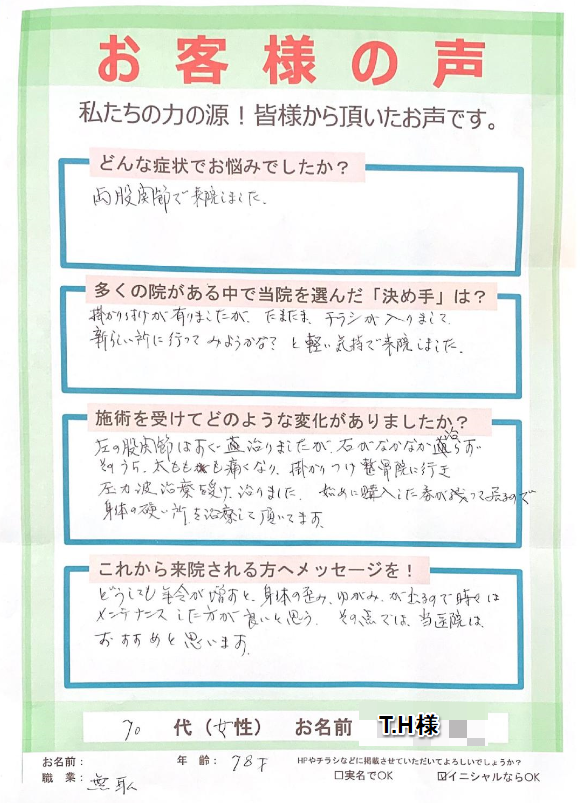 お客様の声
私たちの力の源！皆様から頂いたお声です。
どんな症状でお悩みでしたか？
両股関節で来院しました。
多くの院がある中で当院を選んだ「決め手」は？
掛かりつけが有りましたが、たまたま、チラシが入りまして、
新らしい所に行ってみようかな？と軽い気持で来院しました。
施術を受けてどのような変化がありましたか？
左の股関節はすぐ治りましたが、右がなかなか治らず
そのうち、太ももも痛くなり、掛かりつけ整骨院に行き
圧力波治療を受け、治りました。始めに購入した券が残って居るので
身体の硬い所を治療して頂いてます。
これから来院される方へメッセージを！
どうしても年令が増すと、身体の歪み、ゆがみ、が出るので時々は
メンテナンスした方が良いと思う。その点では、当医院は、
おすすめと思います。
70 代（女性） お名前 T.H様
お名前： 年齢： 78才 HPやチラシなどに掲載させていただいてよろしいでしょうか？
職業： 無職 □実名でOK ☑イニシャルならOK